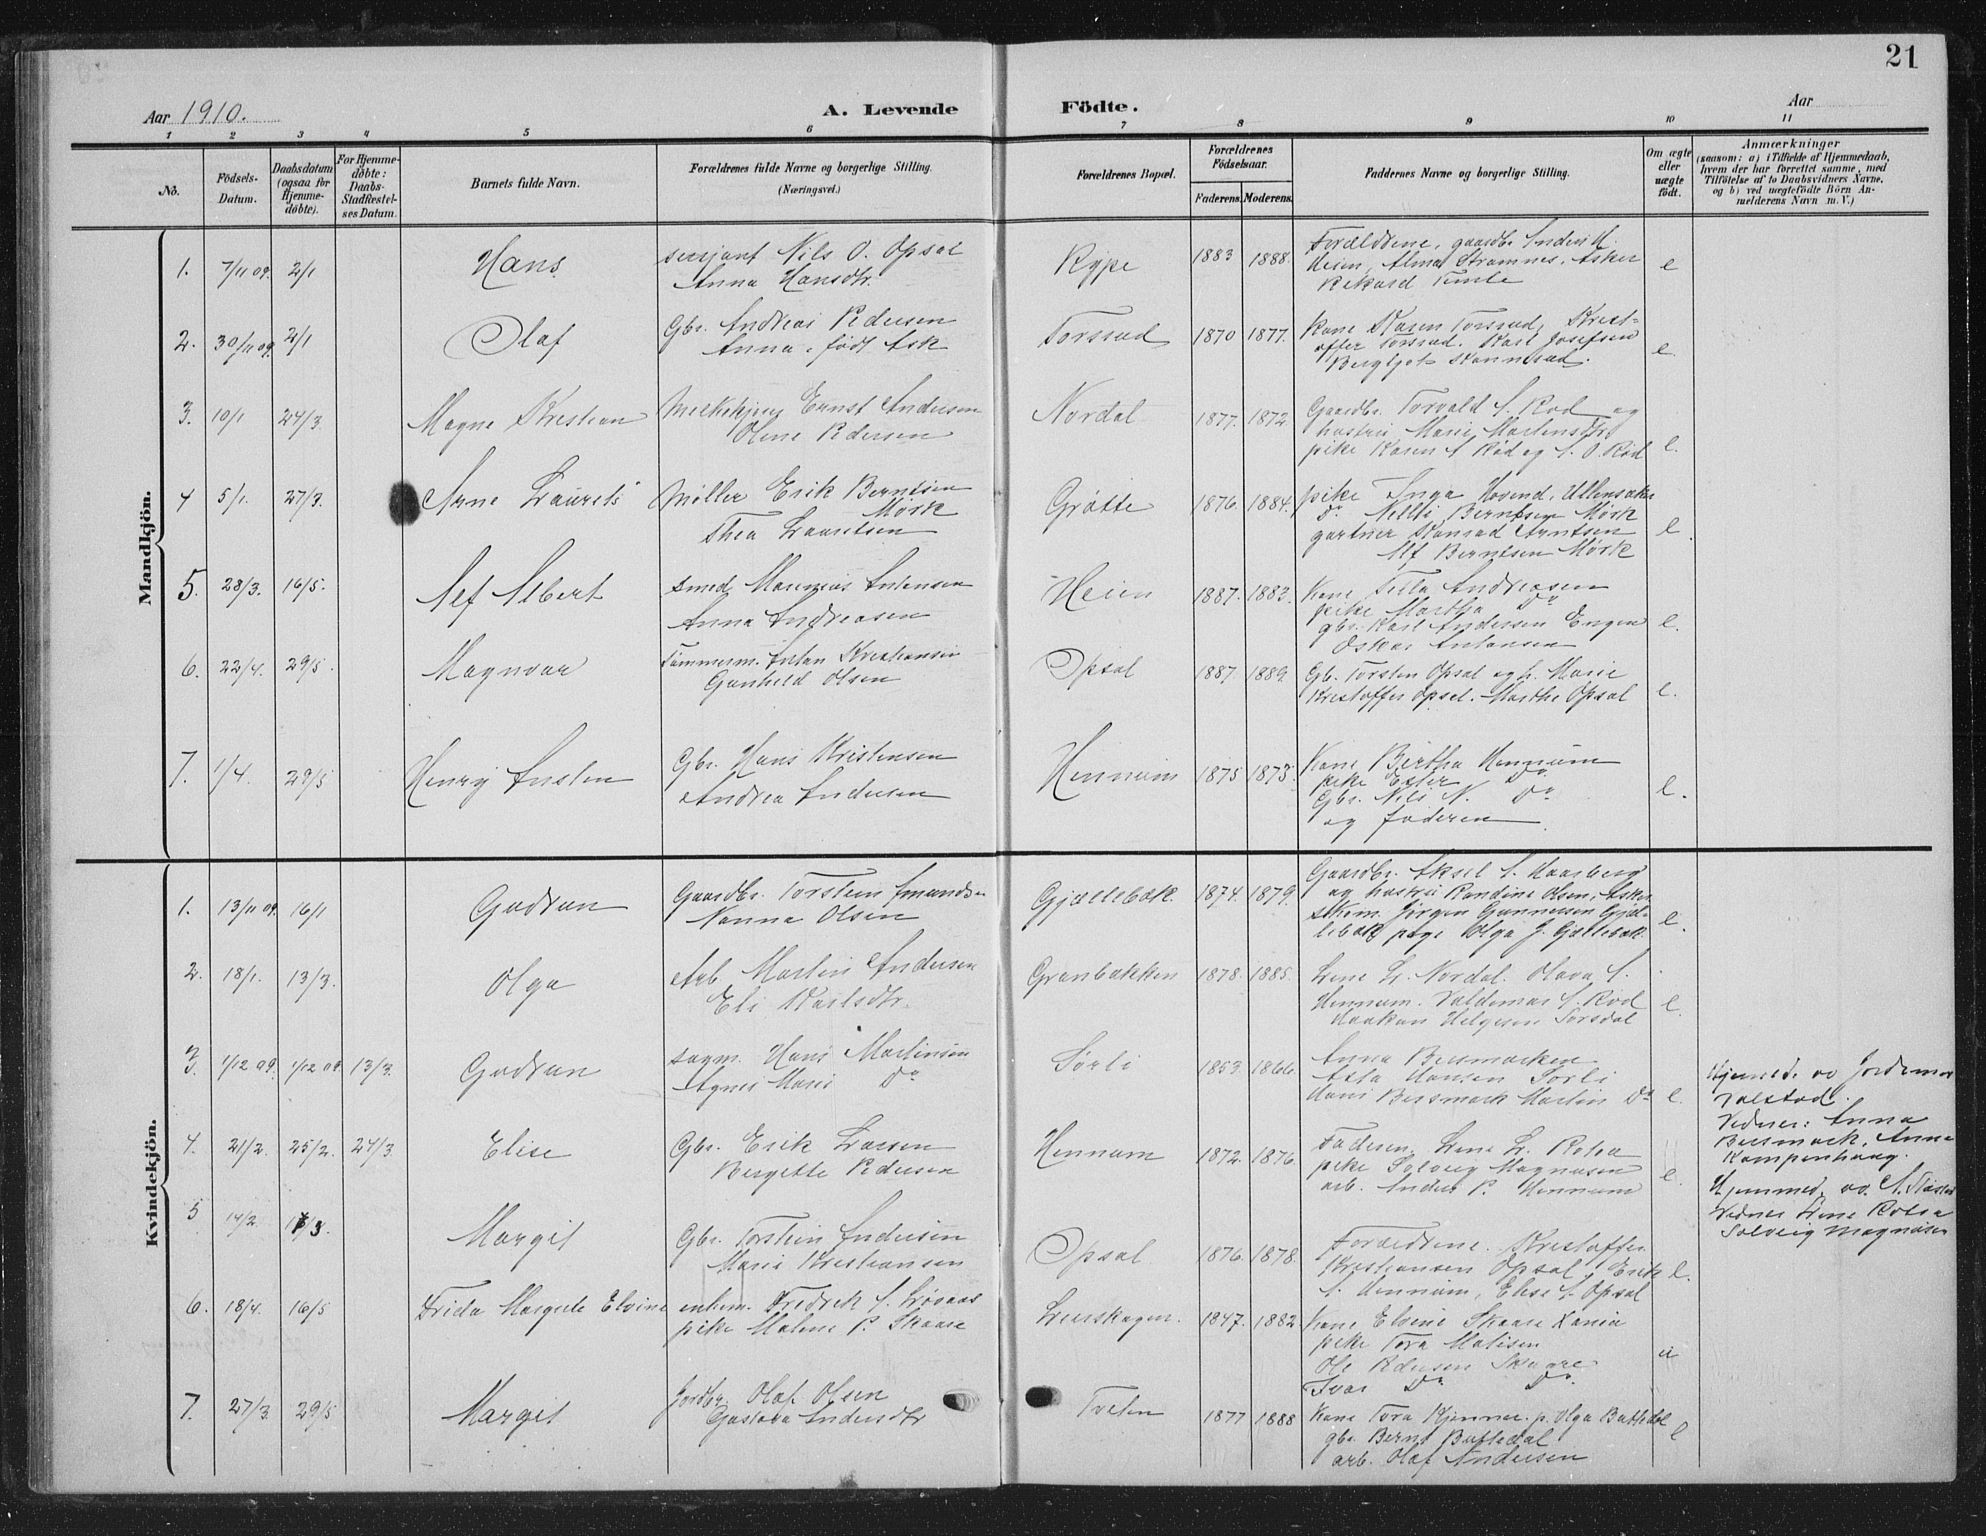 21
Aar 1910.
A. Levende Födte.
Aar
1 2 3 4 5 6 7 8 9 10 11
No.
Födsels-Datum.
Daabsdatum (ogsaa for Hjemme-döbte).
For Hjemme-döbte: Daabs-Stadfæstel-ses Datum.
Barnets fulde Navn.
Forældrenes fulde Navne og borgerlige Stilling. (Næringsvei.)
Forældrenes Bopæl.
Forældrenes Födselsaar.
Faderens. Moderens.
Faddernes Navne og borgerlige Stilling.
Om ægte eller uægte födt.
Anmærkninger
(saasom: a) i Tilfælde af Hjemmedaab, hvem der har forrettet samme, med Tilföielse af to Daabsvidners Navne, og b) ved uægtefödte Börn Anmelderens Navn m. V.)
Mandkjön.
1. 7/11 09. 2/1 Hans sersjant Nils O. Opsal Rype 1883 1888. Forældrene, gaardbr. Anders H.
Anna Hansdtr. Heien, Alma Stramnes, Asker e
Rikard Tente
2. 30/11 09. 2/1 Olaf Gbr. Andreas Pedersen Torsrud 1870 1877. Kone Karen Torsrud, Krist-
Anna, født Ask offer Torsrud. Karl Josefsen
Bergljot e.
3. 10/1 24/3. Magne Kristian Ernst Andersen Nordal 1877. 1872. Gaardbr. Torvald S. Rød og
Oline Pedersen hustru Marie Martinsdtr.
pike Karen S Rød og S. O. Rød e.
4 5/1. 27/3. Arne Laurits Møller Erik Berntsen Mørk Grøtte 1876. 1884. pike Inga Hovind, Ullensaker
Thea Lauritsen Do Nelli Berntsen Mørk
gartner Konrad Arntsen e.
Alf Berntsen Mørk
5. 28/3. 16/5. Alf Albert smed Marenius Antonsen Heien 1887. 1883. Kone Tilla Andreasen
Anna Andreasen pike Martha Do
gbr. Karl Andersen Engen e.
Oskar Antonsen
6. 22/4. 29/5. Magnvar Tømmerm. Anton Kristiansen Opsal 1887. 1889 Gb. Torsten Opsal og h. Marie
Gunhild Olsen Kristoffer Opsal. Marthe Opsal e.
7. 1/4. 29/5 Henry Anton Gbr. Hans Kristensen Hennum 1875 1873. Kone Bertha Hennum
Andrea Andersen pike Ester Do
Gbr. Nils N. Do e.
og faderen
Kvindekjön.
1. 13/11 09. 16/1 Gudrun Gaardbr. Torstein Amundsen Gjellebæk 1874. 1879. Gaardbr. Aksel S. Haarberg
Nanna Olsen og hustru Randine Olsen, Asker
skom. Jørgen Gunnersen Gjel-
lebæk pige Olga J. Gjellebæk e.
2. 18/1. 13/3. Olga Arb. Martin Andersen Granbakken 1878. 1885. Lene L. Nordal. Olava S.
Eli Karlsdtr. Hennum. Valdemar S. Rød e.
Haakon Helgesen Torsdal
3. 1/12 09. 1/12 09. 13/3. Gudrun sagm. Hans Martinsen Sørli 1853 1866. Anna Bersmarken
Agnes Marie Do Asta Hansen Sørli
Hans Bersmark Martin Do e. Hjemmed. av Jordemor
Valstad.
Vidner: Anna
Bersmark, Anna
Kampenhaug.
4. 21/2. 25/2. 27/3. Elise Gbr. Erik Larsen Hennum 1872. 1876. Faderen. Lene L. Rotua
Bergitte Pedersen pike Solveig Magnusen e.
arb. Anders P. Hennum
Hjemmed. av A.
Vidner Lene Rotua
Solveig Magnusen
5 14/2. /3. Margit Gbr. Torstein Andersen Opsal 1876. 1878. Forældrene. Kristoffer
Marie Kristiansen Kristiansen Opsal, Erik e.
S. Hennum, Elise S. Opsal
6. 18/4. 16/5 Frida Margrete Elvine enkem. Fredrik S. Løvaas 1847. 1882. Kone Elvine Skaare
pike Malene P. Skaare pike Tora Matisen
Ole Pedersen Skaare u
Ivar Do Do
7. 27/3. 29/5 Margit Jordbr. Olaf Olsen Tveten 1877 1888 Kone Tora Kjenner. p. Olga Battedal
Gustava Andersdtr gbr. Bernt Battedal e
arb. Olaf Andersen